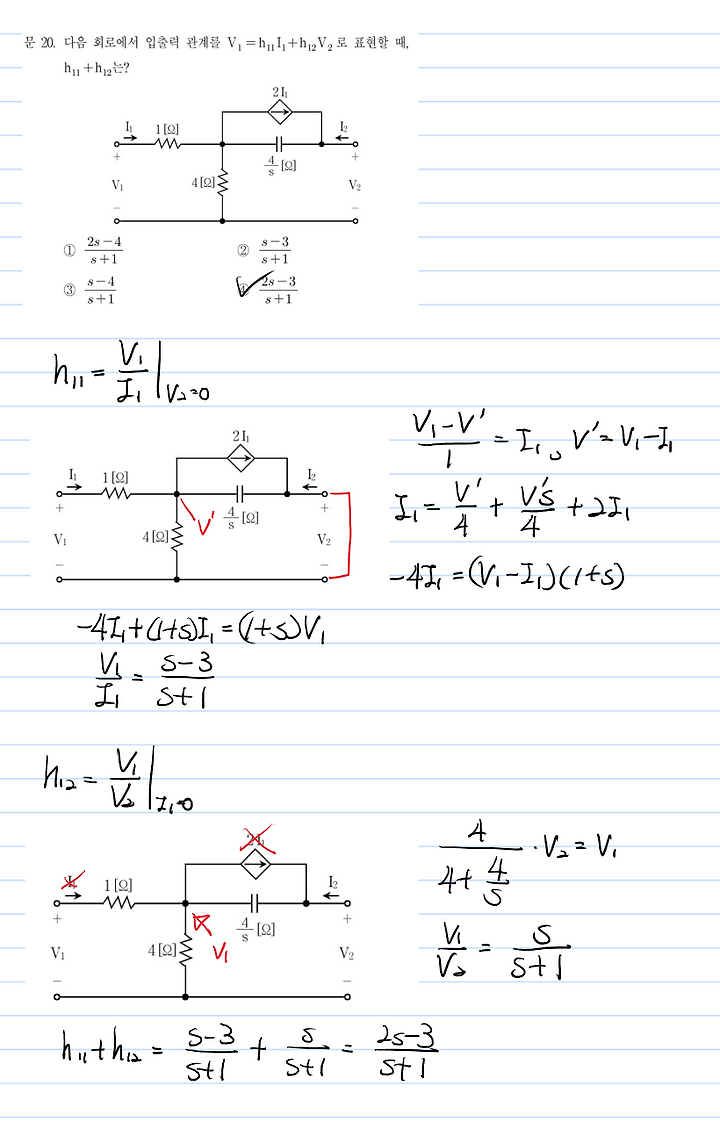 문 20. 다음 회로에서 입출력 관계를 V₁=h₁₁I₁+h₁₂V₂로 표현할 때,
h₁₁+h₁₂는?
2I₁
I₁ 1[Ω] I₂
+ 4/s [Ω] +
V₁ 4[Ω] V₂
− −
① (2s−4)/(s+1) ② (s−3)/(s+1)
③ (s−4)/(s+1) ④ (2s−3)/(s+1)
h₁₁ = V₁/I₁ |V₂=0
2I₁
I₁ 1[Ω] I₂
+ V' 4/s [Ω] +
V₁ 4[Ω] V₂
− −
(V₁−V')/1 = I₁, V'=V₁−I₁
I₁ = V'/4 + V's/4 + 2I₁
−4I₁ = (V₁−I₁)(1+s)
−4I₁+(1+s)I₁ = (1+s)V₁
V₁/I₁ = (s−3)/(s+1)
h₁₂ = V₁/V₂ |I₁=0
2I₁
I₁ 1[Ω] I₂
+ 4/s [Ω] +
V₁ 4[Ω] V₁ V₂
− −
4/(4+4/s) · V₂ = V₁
V₁/V₂ = s/(s+1)
h₁₁+h₁₂ = (s−3)/(s+1) + s/(s+1) = (2s−3)/(s+1)